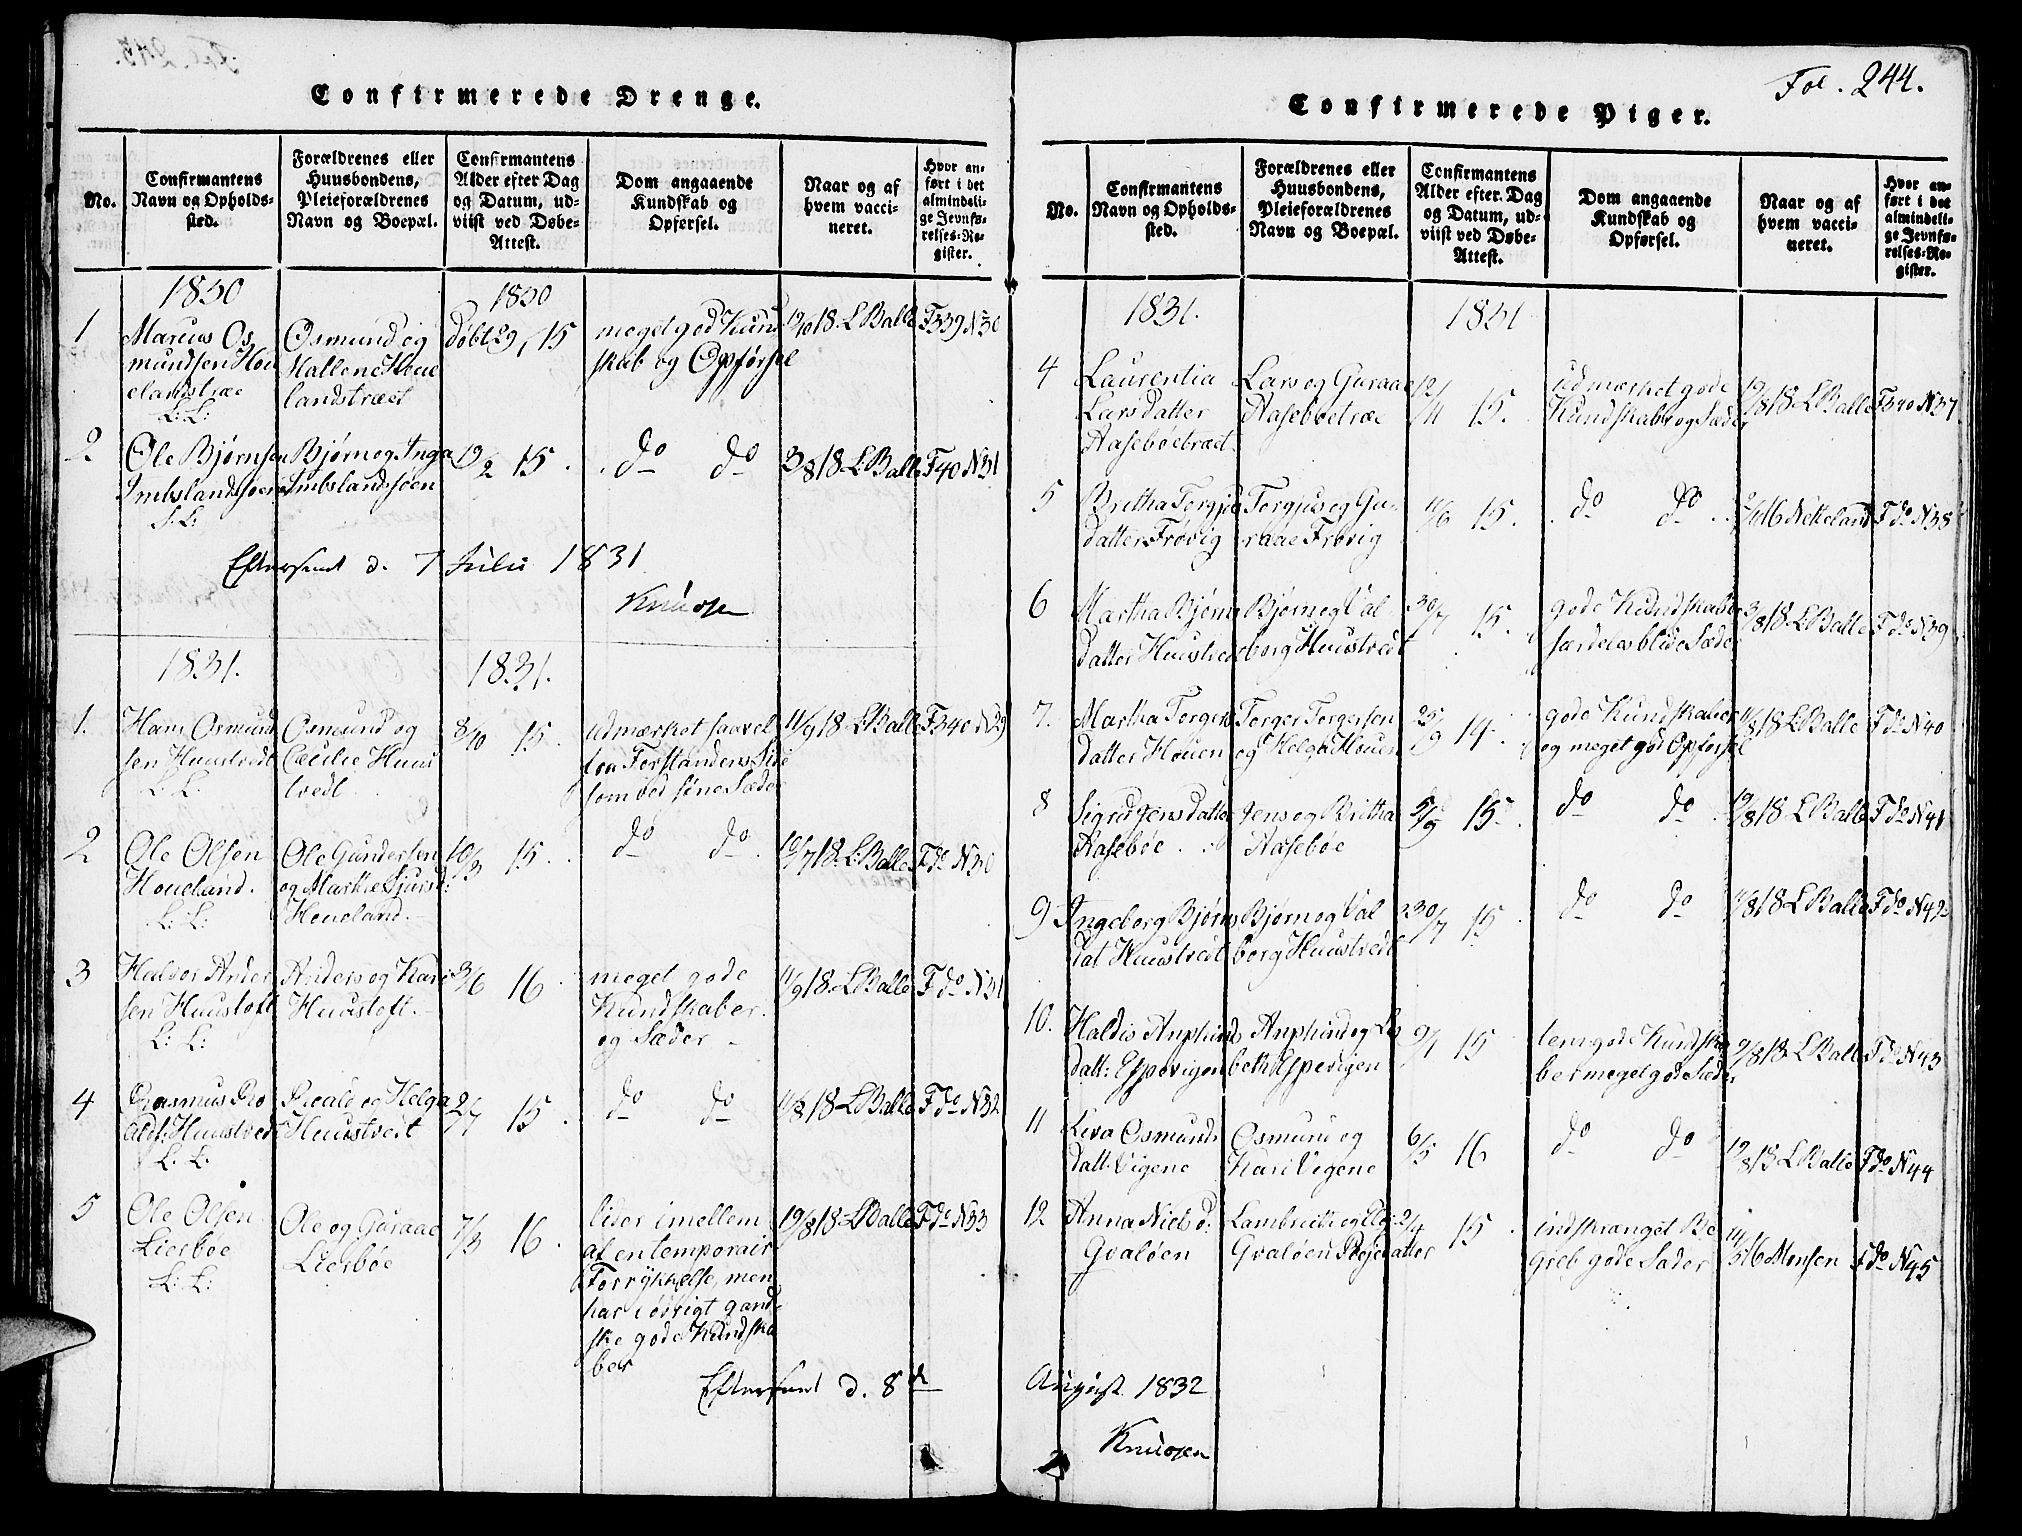 Confirmerede Drenge.
No.
Confirmantens
Navn og Opholds-
sted.
Forældrenes eller
Huusbondens,
Pleieforældrenes
Navn og Boepæl.
Confirmantens
Alder efter Dag
og Datum, ud-
viist ved Døbe-
Attest.
Dom angaaende
Kundskab og
Opførsel.
Naar og af
hvem vacci-
neret.
Hvor an-
ført i det
almindeli-
ge Jevnfø-
relses-Re-
gister.
1830
1830
1
Marcus Os
mundsen Hou
elandstræe
L: L:
Osmund og
Malene Houe
landstræet
døbt 29, 15
meget god Kund
skab og Opførsel
19/10 18 - L Balle
F339 N30
2
Ole Bjørnsen
Imbslandsøen
S: L:
Bjørn og Inga
Imbslandsøen
19/2 15.
do do
3/8 18 - L Balle
F40 N31
Eftersent d. 7 Julii 1831
Knudsen
1831.
1831.
1.
Hans Osmund
sen Huustvedt
L: L:
Osmund og
Cæcilie Huus
tvedt
8/10 15.
udmærket saavel
fra Forstandens Side
som ved sine Sæder
11/9 18 - L: Balle
F340 N29
2
Ole Olsen
Houeland.
L: L:
Ole Gundersen
og Marthe Sjursd:
Houeland.
10/3 15.
do do.
10/7 18 - L: Balle
F do N30
3
Halvor Ander
sen Huustoft
L: L:
Anders og Kari
Huustoft.
3/6 16
meget gode
Kundskaber
og Sæder
11/9 18 - L Balle
F do N31
4
Rasmus Ro
aldt: Huustvedt
L: L:
Roald og Helga
Huustvedt
2/7 15.
do do
11/8 18 - L Balle
F do N32
5
Ole Olsen
Lierbøe
L: L:
Ole og Guraae
Lierbøe
7/3 16.
lider imellem
af en temporair
Forrykkelse, men
har i øvrigt gand-
ske gode Kundska
ber
19/8 18 - L Balle
F do N33
Eftersent d. 8d
Fol. 244.
Confirmerede Piger.
No.
Confirmantens
Navn og Opholds-
sted.
Forældrenes eller
Huusbondens,
Pleieforældrenes
Navn og Boepæl.
Confirmantens
Alder efter Dag
og Datum, ud-
viist ved Døbe-
Attest.
Dom angaaende
Kundskab og
Opførsel.
Naar og af
hvem vacci-
neret.
Hvor an-
ført i det
almindeli-
ge Jevnfø-
relses-Re-
gister.
1831.
1831
4
Laurentia
Larsdatter
Aasebøetræet
Lars og Guraae
Aasebøetræ
12/4 15.
udmærket gode
Kundskaber og Sæder
19/8 18 - L Balle
F340 N37
5
Britha Torgjus
datter Frøvig
Torgjus og Gu-
raae Frøvig
11/6 15.
do do
16 Netteland
F do N38
6
Martha Bjørns
datter Huustvedt
Bjørn og Val
borg Huustvedt
30/7 15.
gode Kundskaber
særdeles blide Sæder
3/8 18 - L Balle
F do N39
7.
Martha Torgers
datter Houen
Torger Torgersen
og Helga Houen
25/9 14.
gode Kundskaber
og meget god Opførsel
11/8 18 - L Balle
F do N40
8
Sigrid Jensdatter
Aasebøe
Jens og Britha
Aasebøe
5/9 15.
do do
19/8 18 - L Balle
F do N41
9
Ingeborg Bjørns
dat Huustvedt
Bjørn og Val
borg Huustvedt
30/7 15.
do do
11/8 18 - L Balle
F do N42
10.
Haldis Anphinds
datt: Espevigen
Anphind og Lis
beth Espevigen
9/1 15
temgode Kundska
ber meget gode Sæder
9/8 18 - L Balle
F do N43
11
Liva Osmunds
datt. Vigene
Osmund og
Kari Vigene
6/5 16
do do
19/8 18 L Balle
F do N44
12
Anna Niels d:
Gvaløen
Lambrith og
Gvaløen Plejedatter
2/4 15.
indskrænget Be
greb gode Sæder
14/5 16 Monsen
F do N45
August 1832
Knudsen